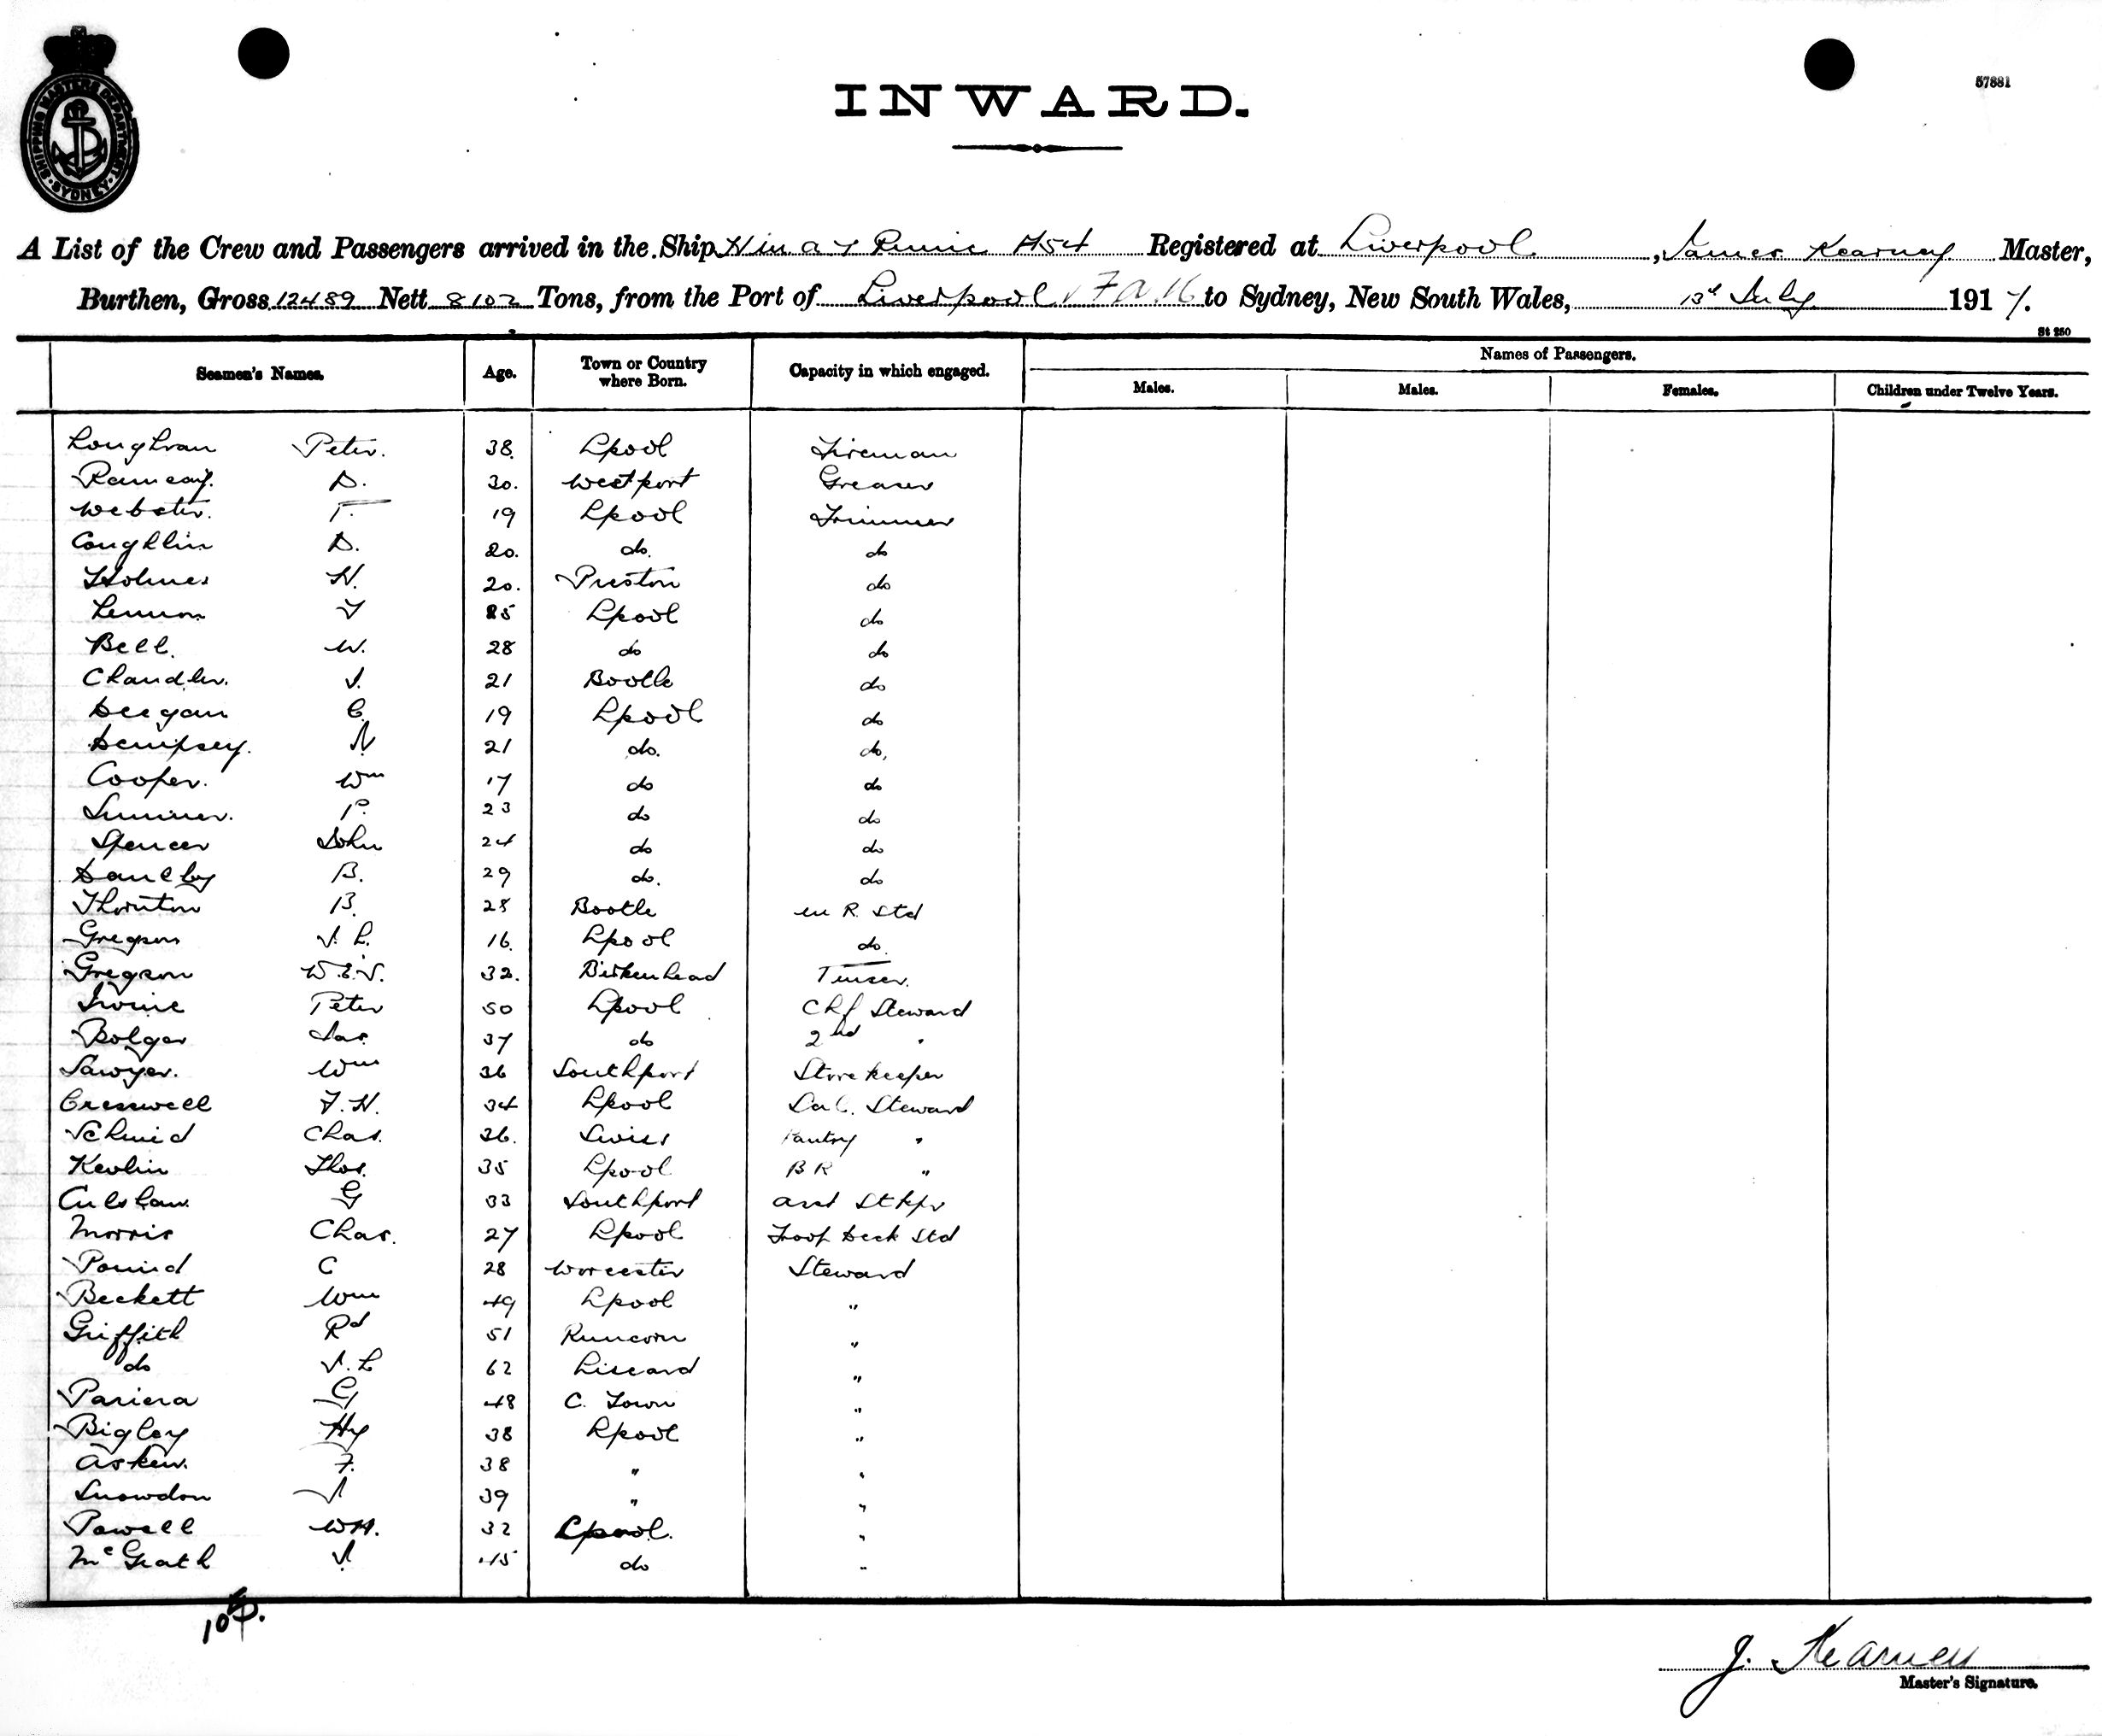 SHIPPING MASTERS DEPARTMENT · SYDNEY ·
57881
INWARD.
A List of the Crew and Passengers arrived in the Ship H.M.A.T Runic A54 Registered at Liverpool, James Kearney Master,
Burthen, Gross 12489 Nett 8102 Tons, from the Port of Liverpool to Sydney, New South Wales, 13th July 1917.
St 250
Seamen's Names. Age. Town or Country where Born. Capacity in which engaged. Names of Passengers.
Males. Males. Females. Children under Twelve Years.
Loughran Peter. 38. Lpool Fireman
Ramsay. D. 30. Westport Greaser
Webster. T. 19 Lpool Trimmer
Coughlin D. 20. do. do
Holmes H. 20. Preston do
Lennon 25 Lpool do
Bell. W. 28 do do
Chandler. J. 21 Bootle do
Deegan C. 19 Lpool do
Dempsey. N 21 do. do,
Cooper. Wm 17 do do
P. 23 do do
Spencer John 24 do do
B. 29 do. do
Thornton B. 28 Bootle M R. Std
Gregson J. L. 16. Lpool do.
Gregson W.E.J. 32. Birkenhead
Irvine Peter 50 Lpool Chf Steward
Bolger Jas. 37 do 2nd "
Sawyer. Wm 36 Southport Storekeeper
Cresswell F.H. 34 Lpool Sal. Steward
Schmid Chas. 26. Swiss Pantry "
Kevlin Thos. 35 Lpool B R "
Culshaw. G 33 Southport asst Stkpr
Morris Chas. 27 Lpool Troop Deck Std
C 28 Worcester Steward
Beckett Wm 49 Lpool "
Griffith Rd 51 Runcorn "
do J. L 62 Liscard "
Pariera G 48 C. Town "
Bigley Hy 38 Lpool "
Askew. F. 38 " "
Snowdon J 39 " "
Powell WH. 32 Lpool. "
McGrath J. 45 do "
J. Kearney
Master's Signature.